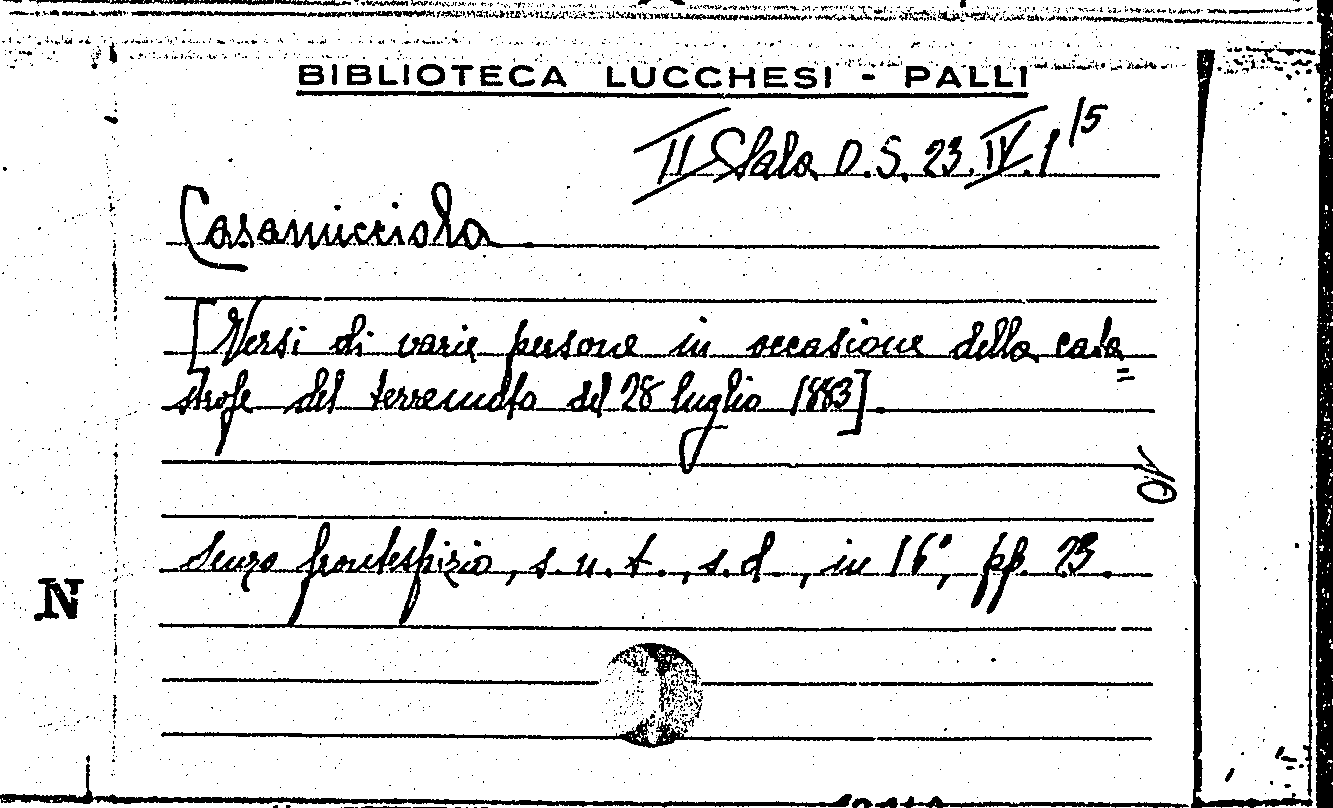 BIBLIOTECA LUCCHESI - PALLI
II Sala O.S. 23. IV. 1/5
Casamicciola
[Versi di varie persone in occasione della cata=
strofe del terremoto del 28 luglio 1883].
Senza frontespizio, s.n.t., s.d., in 16°, pp. 23.
N